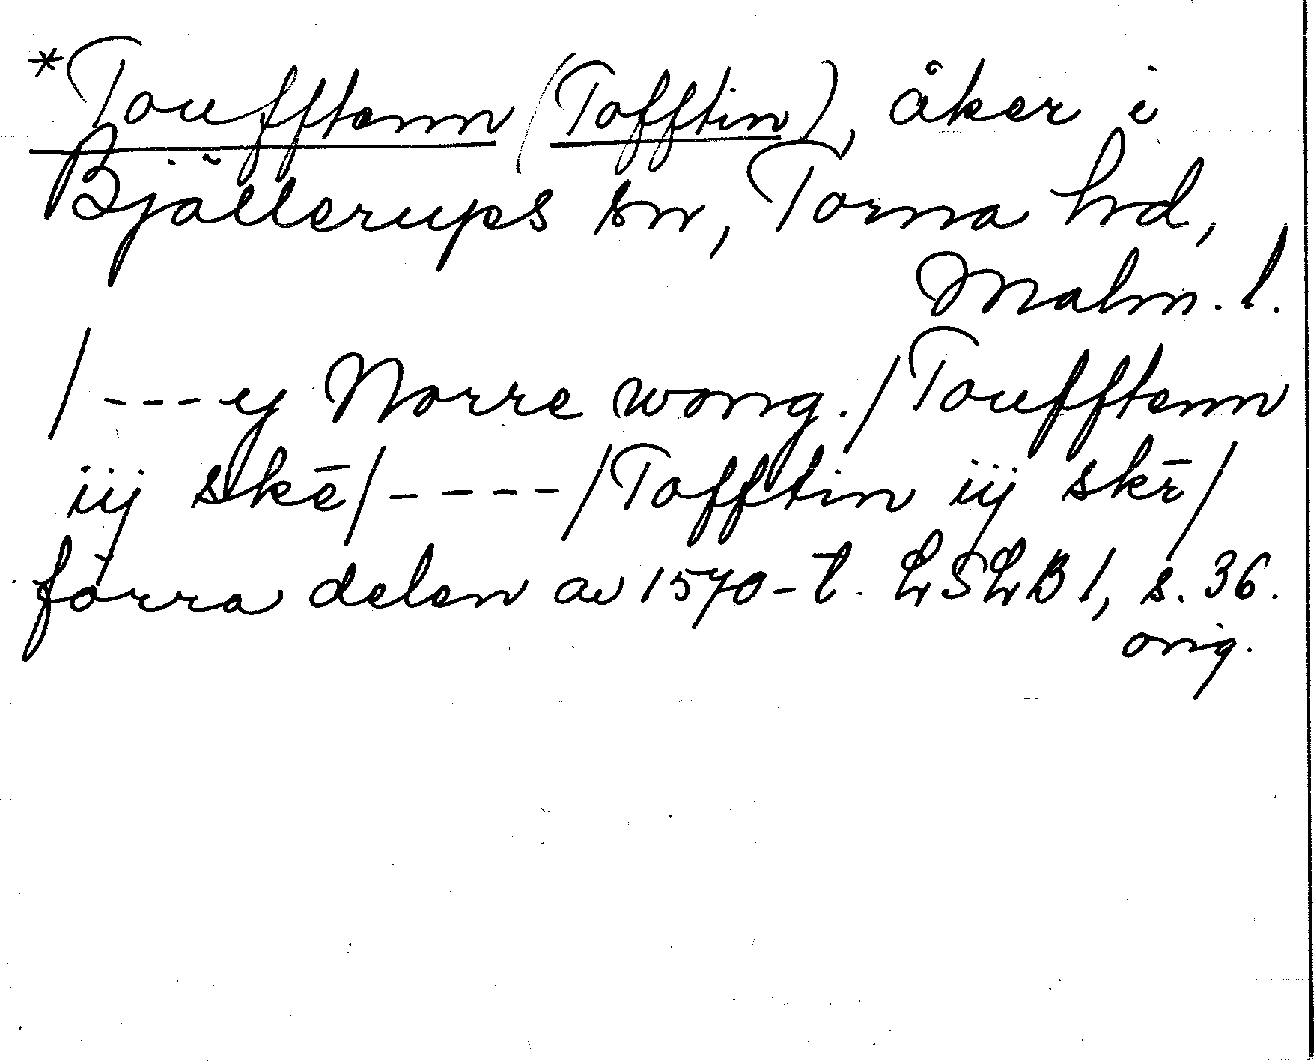 *Toufftenn (Tofftin), åker i
Bjällerups sn, Torna hd,
Malm. l.
/---y Norre wong./Toufftenn
iij skē/----/Tofftin iij skē/
förra delen av 1570-t. LSLB 1, s. 36.
orig.